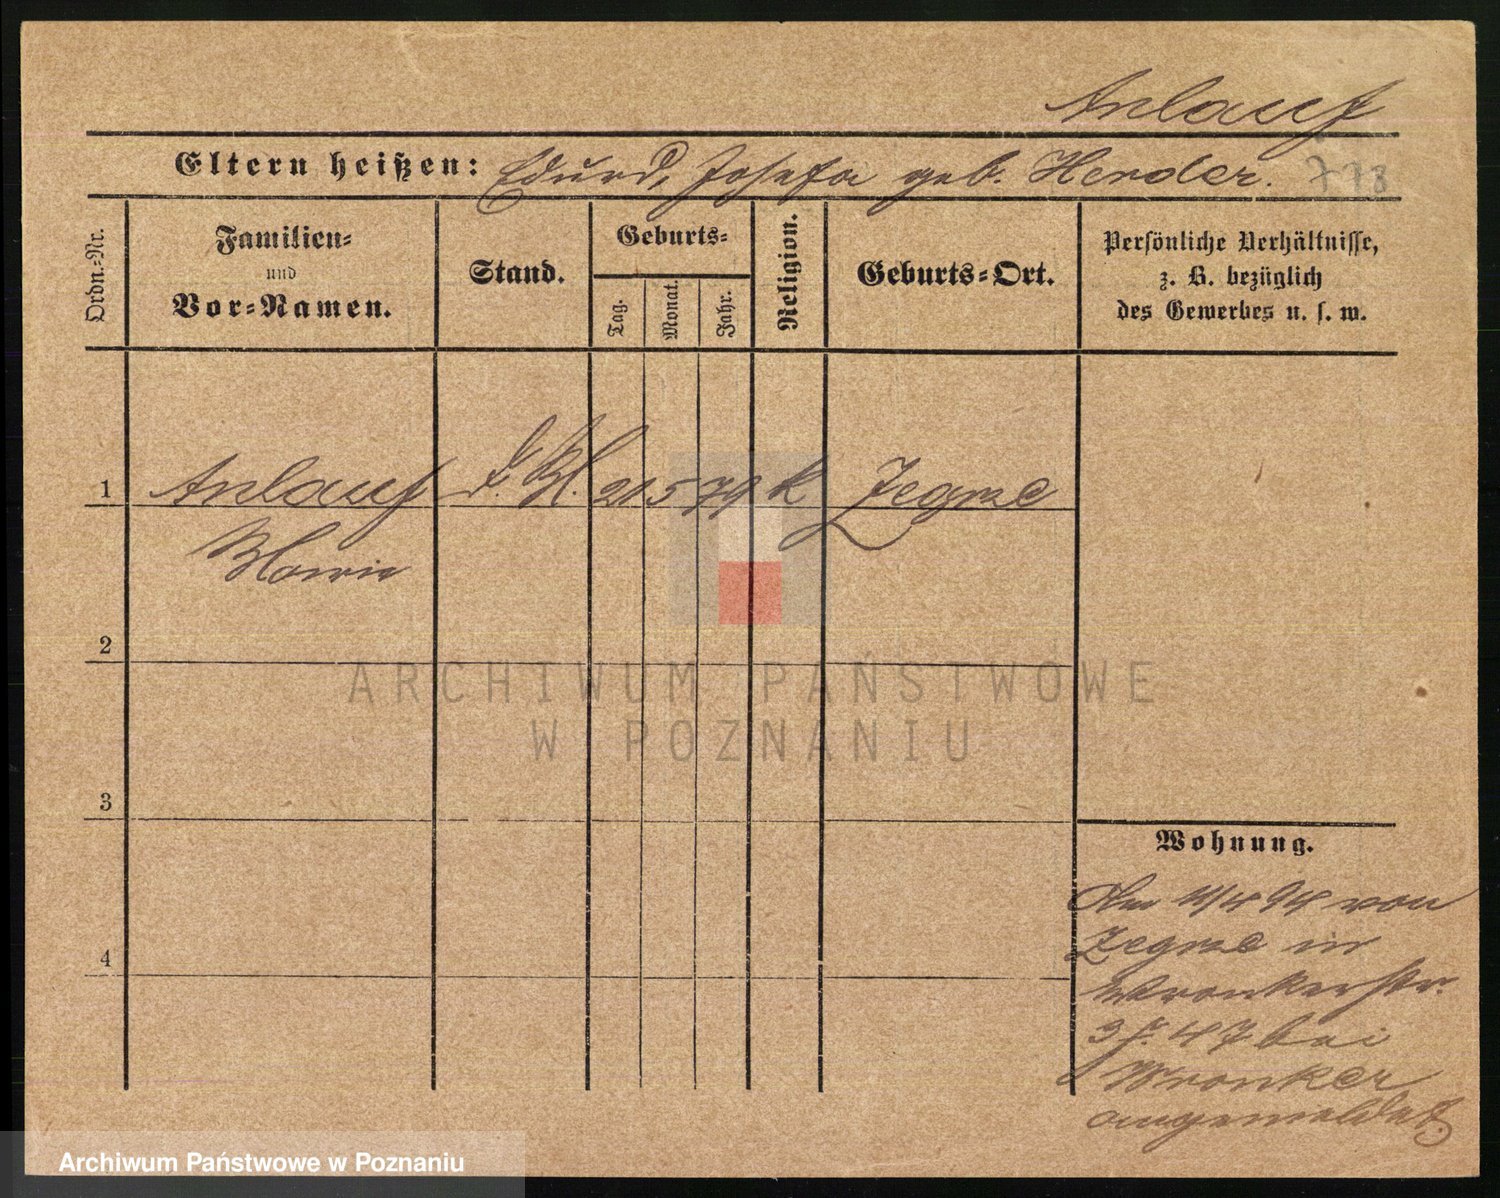 Anlauf
Eltern heißen: Eduard, Josefa geb. Herder. 778
Ordn.-Nr.
Familien-
und
Vor-Namen.
Stand.
Geburts-
Tag.
Monat.
Jahr.
Religion.
Geburts-Ort.
Persönliche Verhältnisse,
z. B. bezüglich
des Gewerbes u. s. w.
1 Anlauf 21 5 79 k Zegrze
Marie
2
ARCHIWUM PAŃSTWOWE
W POZNANIU
3
4
Wohnung.
Am 11/4 94 von
Zegrze in
Wronkerstr.
bei
Wronker
angemeldet.
Archiwum Państwowe w Poznaniu